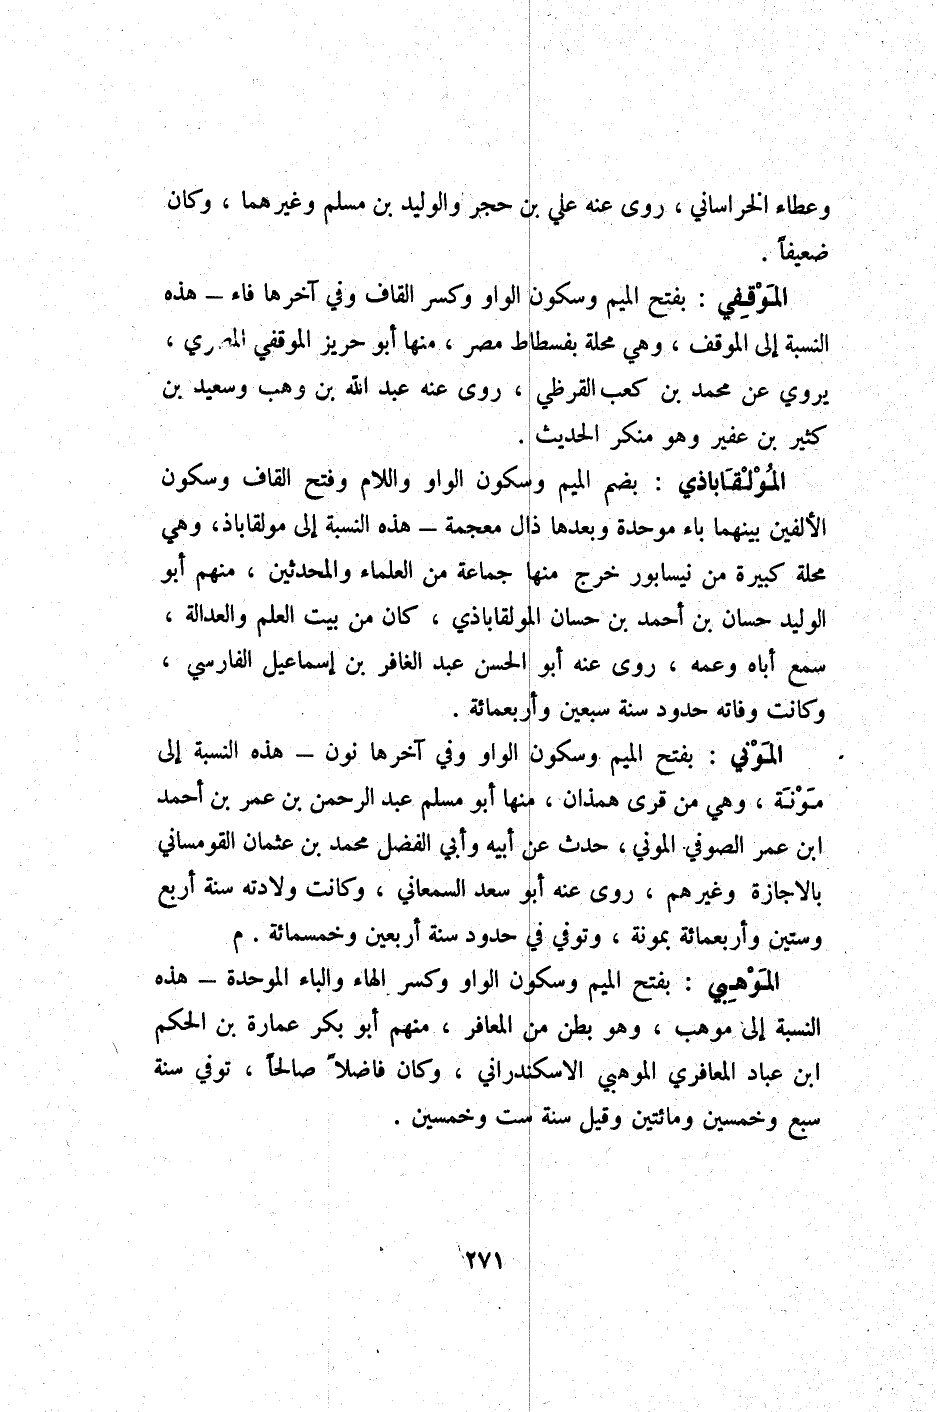 وعطاء الخراساني ، روى عنه علي بن حجر والوليد بن مسلم وغيرهما ، وكان
ضعيفاً .
المَوْقِفي : بفتح الميم وسكون الواو وكسر القاف وفي آخرها فاء – هذه
النسبة إلى الموقف ، وهي محلة بفسطاط مصر ، منها أبو حريز الموقفي المصري ،
يروي عن محمد بن كعب القرظي ، روى عنه عبد الله بن وهب وسعيد بن
كثير بن عفير وهو منكر الحديث .
المُوْلْقَاباذي : بضم الميم وسكون الواو واللام وفتح القاف وسكون
الألفين بينهما باء موحدة وبعدها ذال معجمة – هذه النسبة إلى مولقاباذ، وهي
محلة كبيرة من نيسابور خرج منها جماعة من العلماء والمحدثين ، منهم أبو
الوليد حسان بن أحمد بن حسان المولقاباذي ، كان من بيت العلم والعدالة ،
سمع أباه وعمه ، روى عنه أبو الحسن عبد الغافر بن إسماعيل الفارسي ،
وكانت وفاته حدود سنة سبعين وأربعمائة .
المَوْني : بفتح الميم وسكون الواو وفي آخرها نون – هذه النسبة إلى
مَوْنَة ، وهي من قرى همذان ، منها أبو مسلم عبد الرحمن بن عمر بن أحمد
ابن عمر الصوفي الموني ، حدث عن أبيه وأبي الفضل محمد بن عثمان القومساني
بالاجازة وغيرهم ، روى عنه أبو سعد السمعاني ، وكانت ولادته سنة أربع
وستين وأربعمائة بمونة ، وتوفي في حدود سنة أربعين وخمسمائة . م
المَوْهِبي : بفتح الميم وسكون الواو وكسر الهاء والباء الموحدة – هذه
النسبة إلى موهب ، وهو بطن من المعافر ، منهم أبو بكر عمارة بن الحكم
ابن عباد المعافري الموهبي الاسكندراني ، وكان فاضلاً صالحاً ، توفي سنة
سبع وخمسين ومائتين وقيل سنة ست وخمسين .
٢٧١